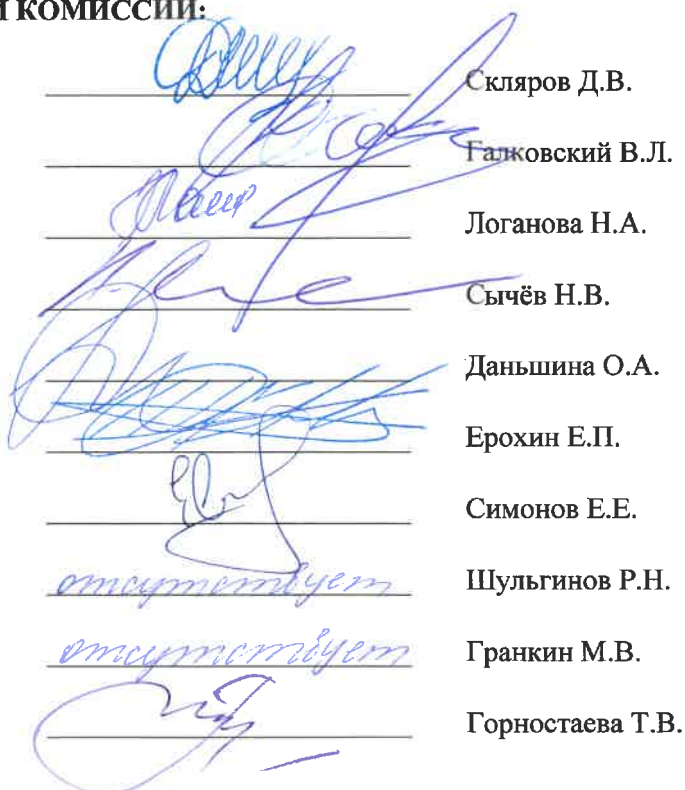 КОМИССИИ:
Скляров Д.В.
Галковский В.Л.
Логанова Н.А.
Сычёв Н.В.
Даньшина О.А.
Ерохин Е.П.
Симонов Е.Е.
отсутствует Шульгинов Р.Н.
отсутствует Гранкин М.В.
Горностаева Т.В.